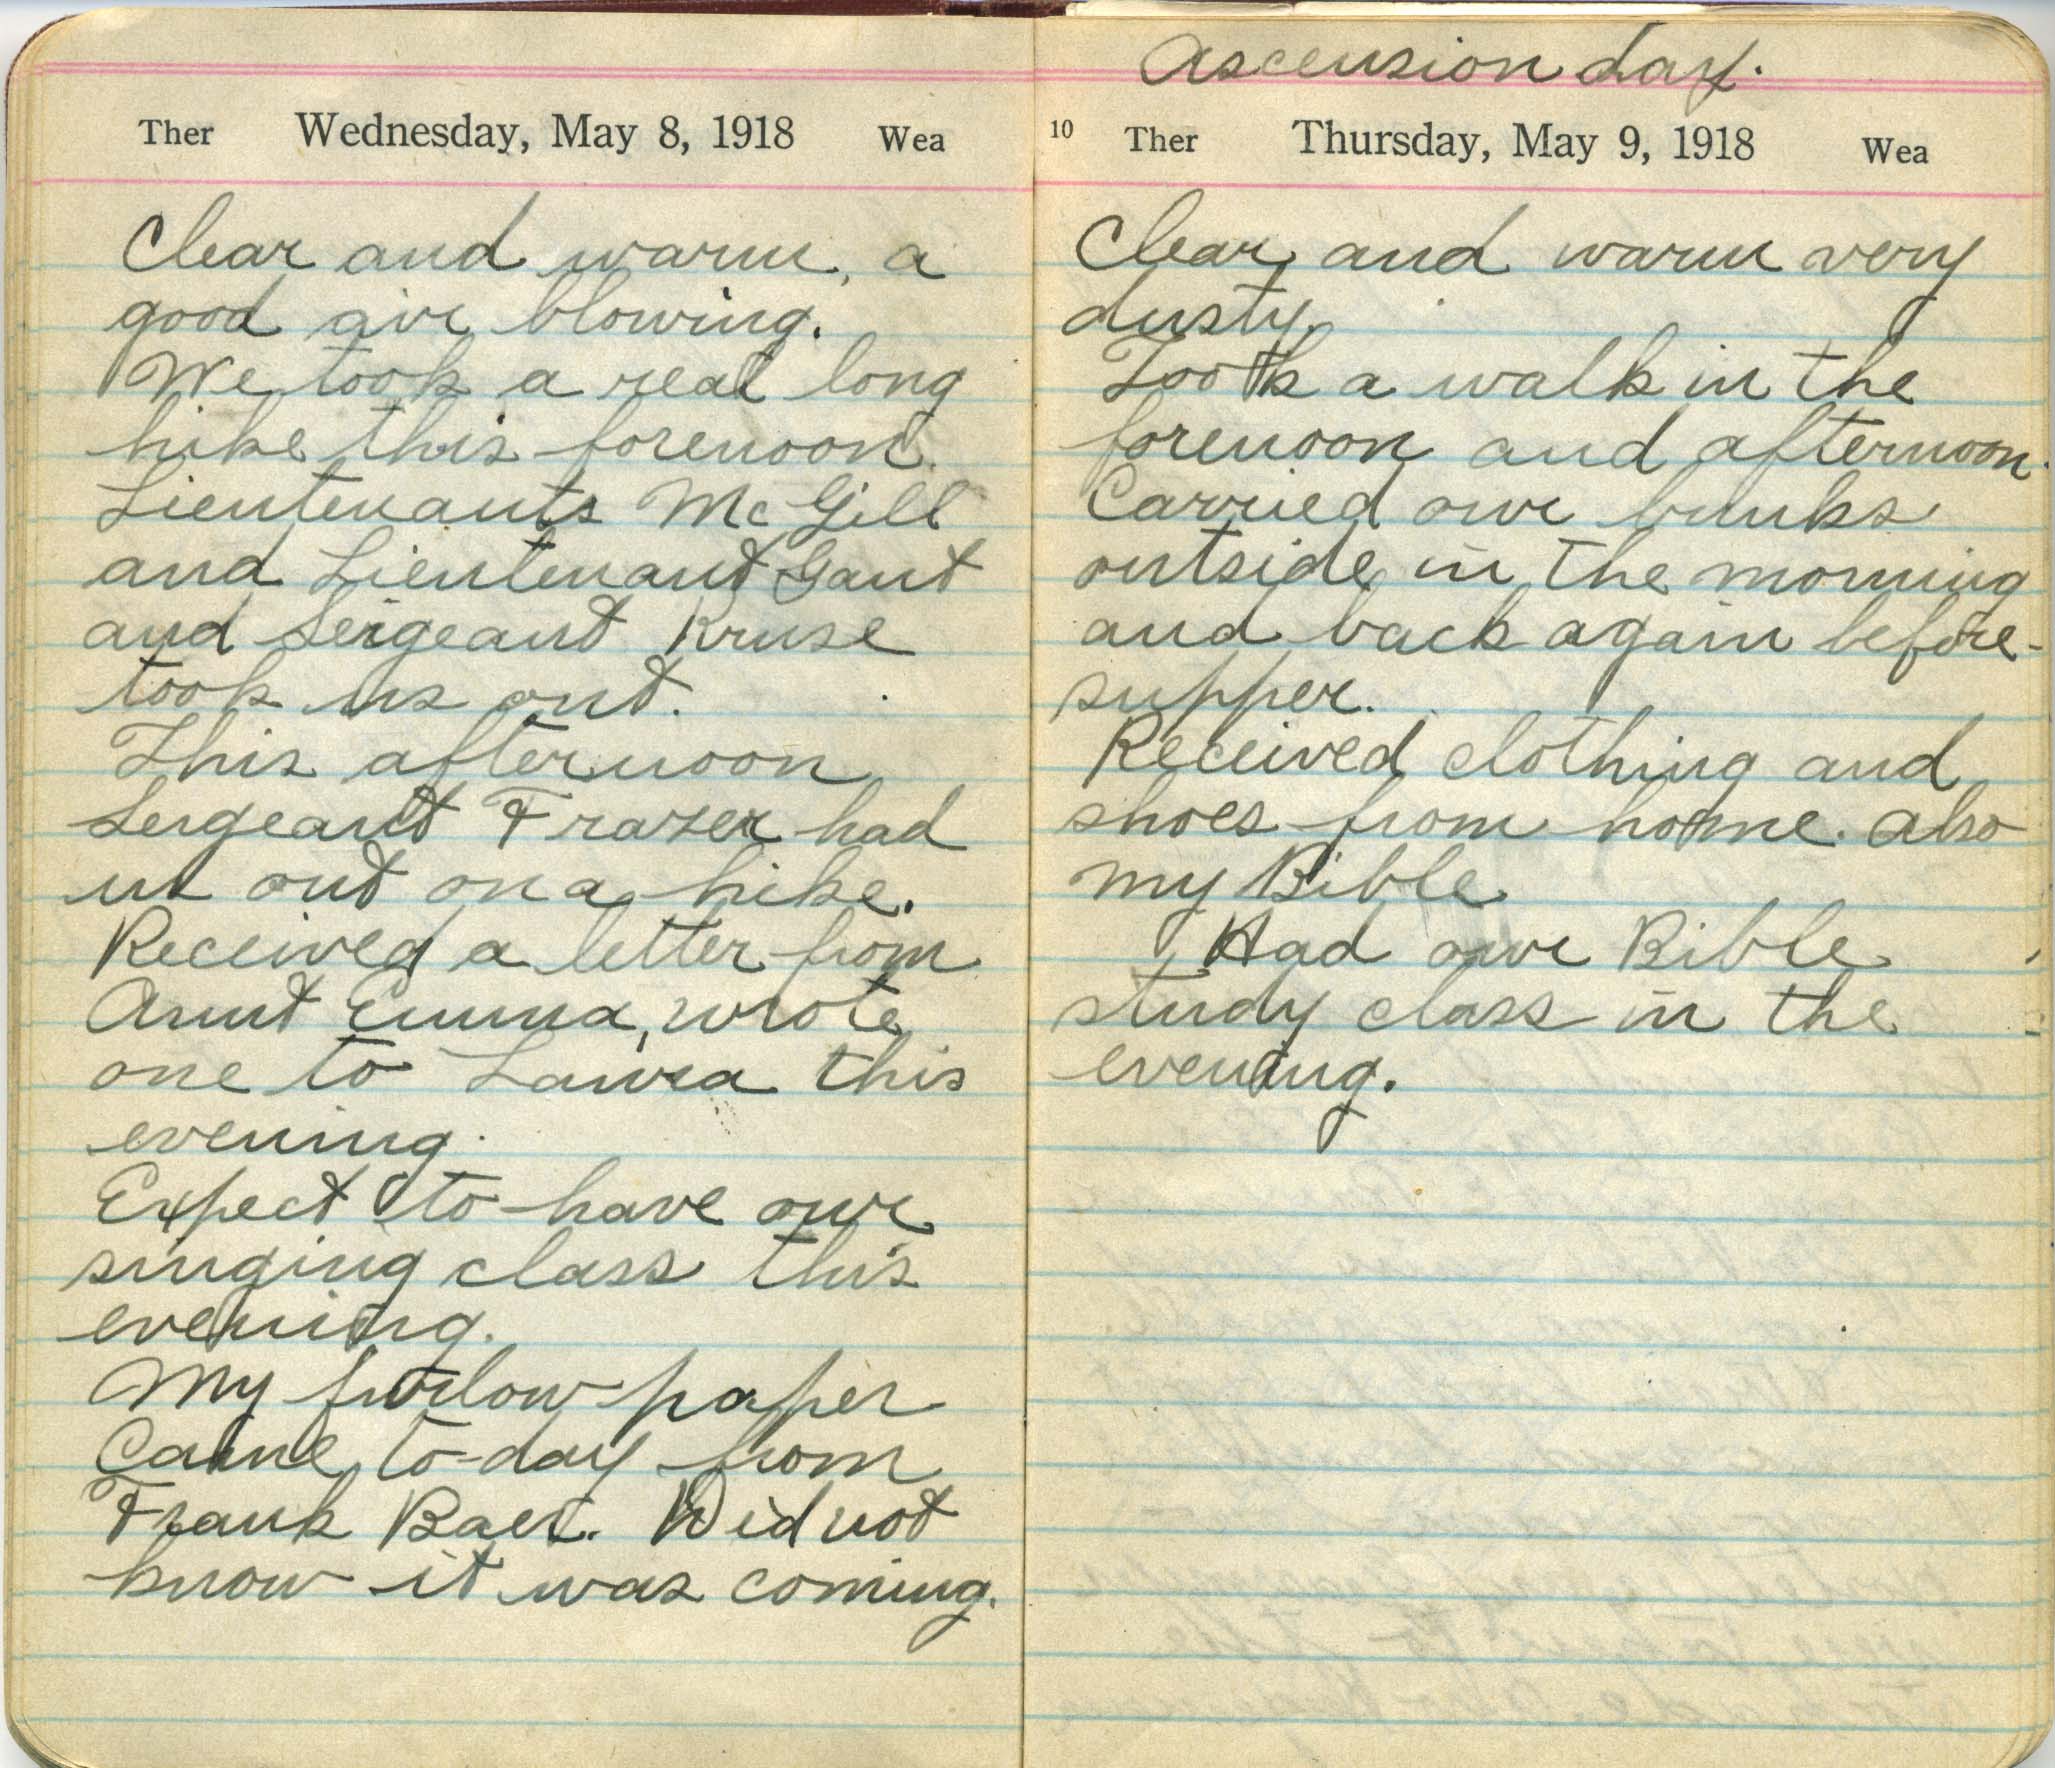 Ther Wednesday, May 8, 1918 Wea
Clear and warm, a
good air blowing.
We took a real long
hike this forenoon.
Lieutenants McGill
and Lieutenant Gant
and Sergeant Kruse
took us out.
This afternoon
Sergeant Frazer had
us out on a hike.
Received a letter from
Aunt Emma, wrote
one to Laura this
evening.
Expect to have our
singing class this
evening.
My furlow paper
came to-day from
Frank Baer. Did not
know it was coming.
Ascension day.
10 Ther Thursday, May 9, 1918 Wea
Clear and warm very
dusty.
Took a walk in the
forenoon and afternoon.
Carried our bunks
outside in the morning
and back again before
supper.
Received clothing and
shoes from home. also
my Bible
Had our Bible
study class in the
evening.